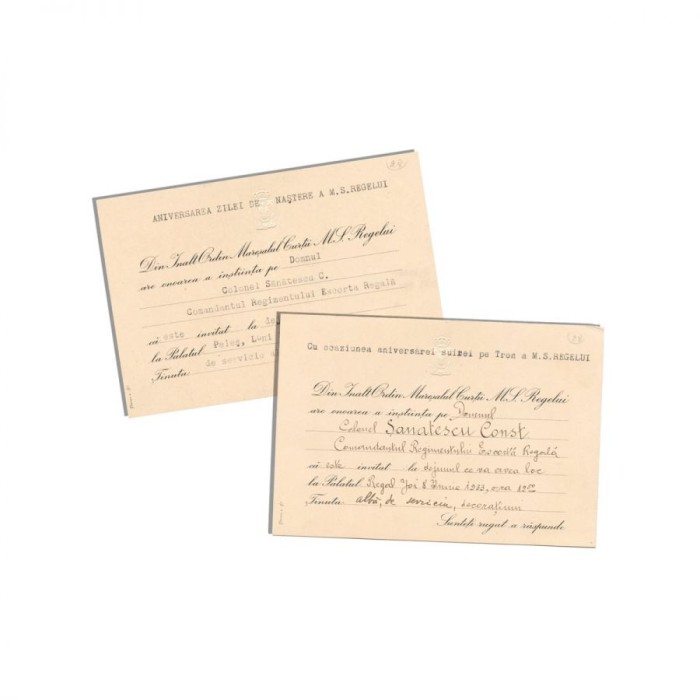 ANIVERSAREA ZILEI DE NAȘTERE A M.S.REGELUI
Din Inalt Ordin Mareșalul Curții M.S. Regelui
are onoarea a înștiința pe Domnul
Colonel Sănătescu C.
Comandantul Regimentului Escorta Regală
că este invitat la
la Palatul Peleș, Luni
Ținuta: de serviciu
Cu ocaziunea aniversărei suirei pe Tron a M.S.REGELUI
Din Inalt Ordin Mareșalul Curții M.S. Regelui
are onoarea a înștiința pe Domnul
Colonel Sanatescu Const
Comandantul Regimentului Escortă Regală
că este invitat la dejunul ce va avea loc
la Palatul Regal Joi 8 Iunie 1933, ora
Ținuta: albă, de serviciu, decorațiuni
Sunteți rugat a răspunde